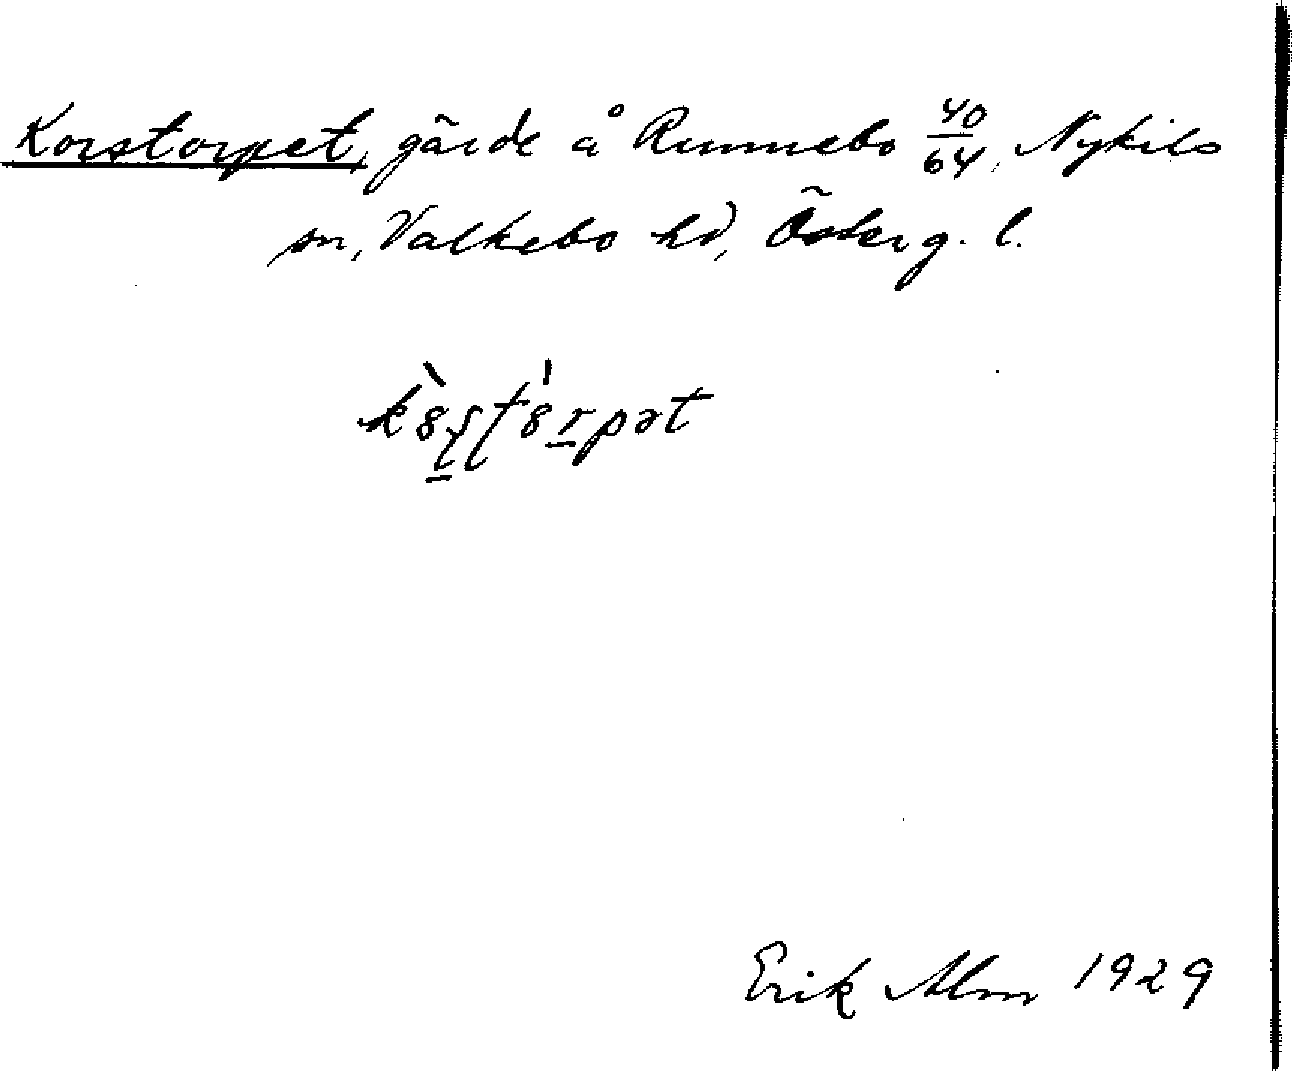 Korstorpet, gärde å Runnebo 40/64, Nykils
sn, Valkebo hd, Österg. l.
Erik Alm 1929